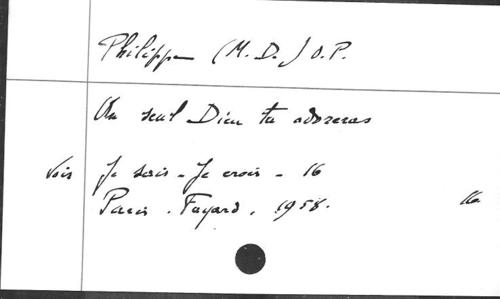 Philippe (M. D.) O.P.
Un seul Dieu tu adoreras
Voir Je sais - Je crois - 16
Paris. Fayard. 1958. 16